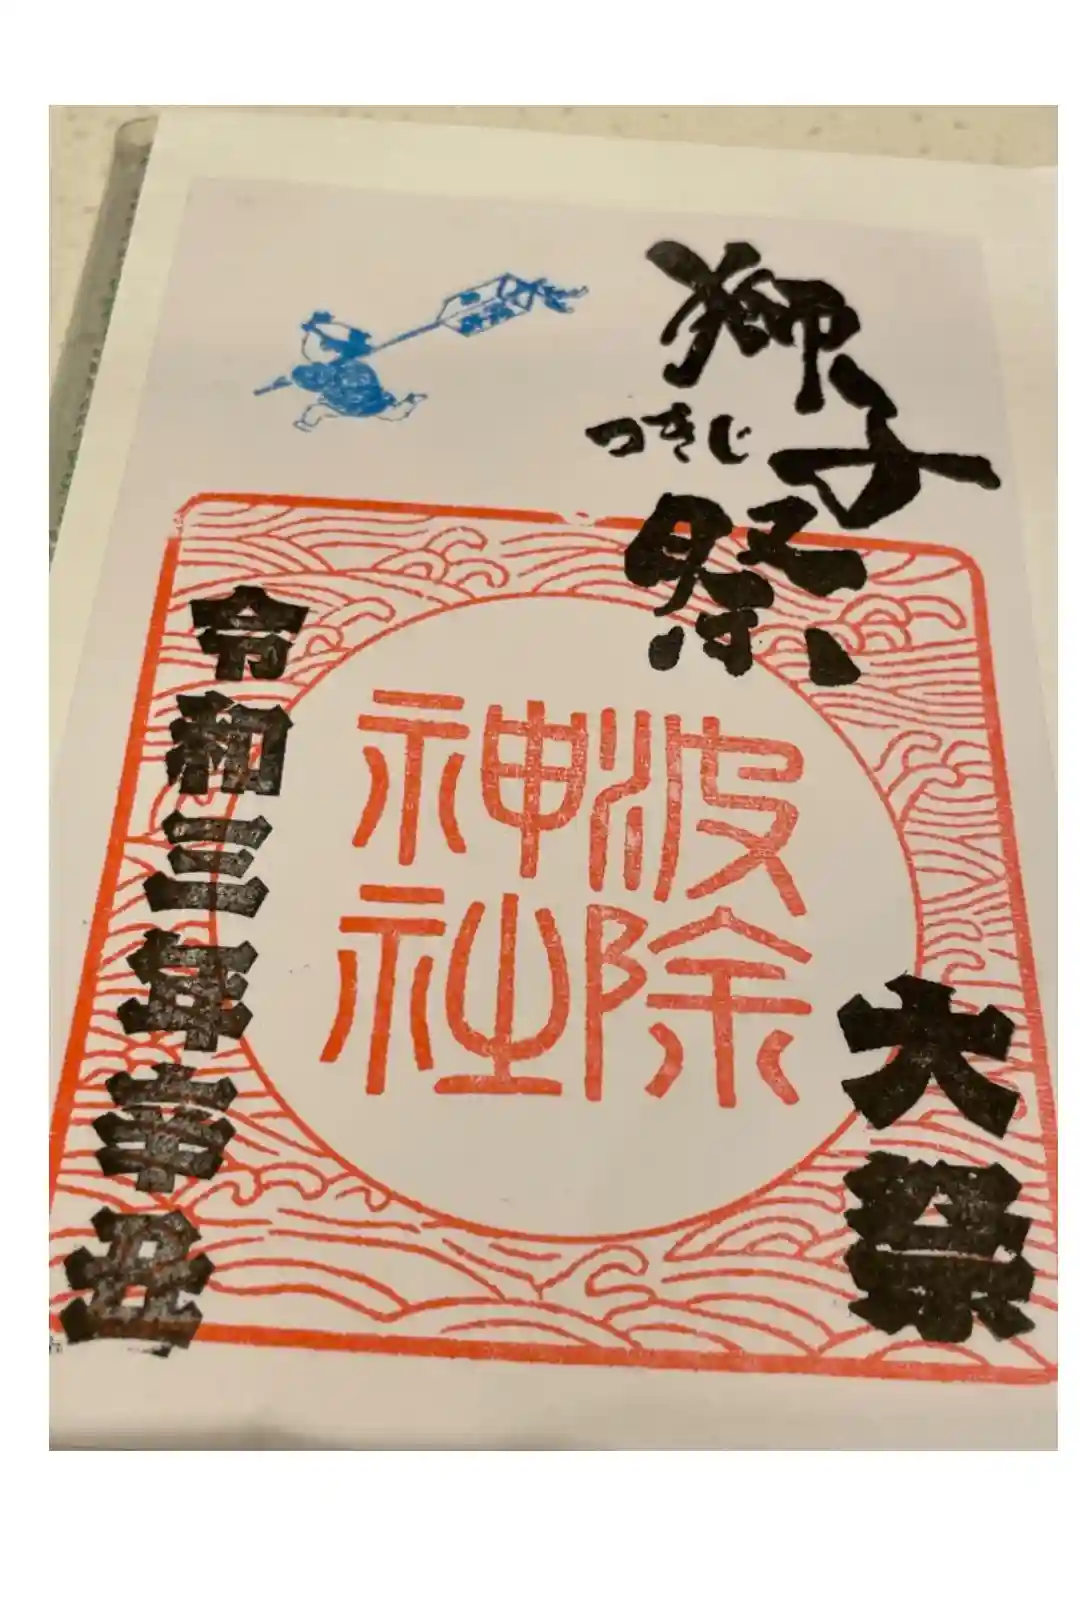 つきじ
獅子祭
大祭
波除
神社
令和三年辛丑